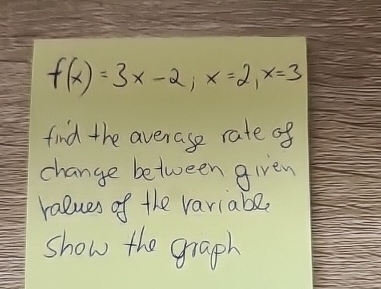 f(x) = 3x - 2; x = 2, x = 3
find the average rate of
change between given
values of the variable
show the graph